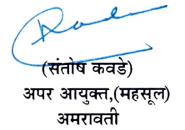 (संतोष कवडे)
अपर आयुक्त,(महसूल)
अमरावती